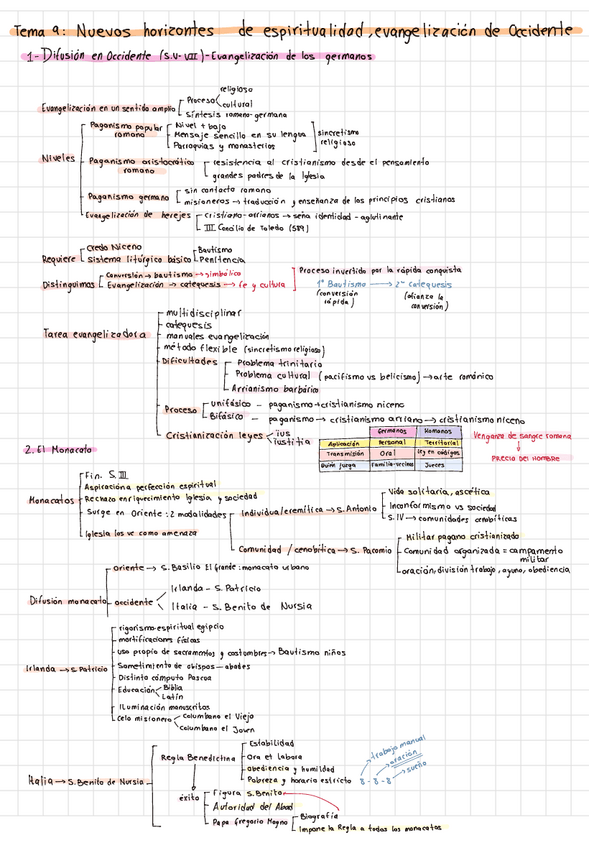 Tema 9: Nuevos horizontes de espiritualidad, evangelización de Occidente
1- Difusión en Occidente (s.V-VII) - Evangelización de los germanos
Evangelización en un sentido amplio
Proceso
religioso
cultural
Síntesis romano-germana
Niveles
Paganismo popular romano
Nivel + bajo
Mensaje sencillo en su lengua
Parroquias y monasterios
sincretismo religioso
Paganismo aristocrático romano
resistencia al cristianismo desde el pensamiento
grandes padres de la Iglesia
Paganismo germano
sin contacto romano
misioneros → traducción y enseñanza de los principios cristianos
Evangelización de herejes
cristiano-arrianos → seña identidad - aglutinante
III Concilio de Toledo (589)
Requiere
Credo Niceno
sistema litúrgico básico
Bautismo
Penitencia
Distinguimos
Conversión → bautismo → simbólico
Evangelización → catequesis → fe y cultura
Proceso invertido por la rápida conquista
1º Bautismo → 2º catequesis
(conversión rápida)
(afianza la conversión)
Tarea evangelizadora
multidisciplinar
catequesis
manuales evangelización
método flexible (sincretismo religioso)
Dificultades
Problema trinitario
Problema cultural (pacifismo vs belicismo) → arte románico
Arrianismo barbárico
Proceso
unifásico - paganismo → cristianismo niceno
Bifásico - paganismo → cristianismo arriano → cristianismo niceno
Cristianización leyes
ius
iustitia
Germanos Romanos
Aplicación Personal Territorial
Transmisión Oral Ley en códigos
Quién juzga Familia-vecinos Jueces
Venganza de sangre romana
PRECIO DEL HOMBRE
2. El Monacato
Monacatos
Fin. S. III
Aspiración a perfección espiritual
Rechazo enriquecimiento Iglesia y sociedad
Surge en Oriente: 2 modalidades
Iglesia los ve como amenaza
Individual/eremítica → S. Antonio
Vida solitaria, ascética
Inconformismo vs sociedad
S. IV → comunidades cenobíticas
Comunidad / cenobítica → S. Pacomio
Militar pagano cristianizado
Comunidad organizada = campamento militar
oración, división trabajo, ayuno, obediencia
Difusión monacato
oriente → S. Basilio El Grande: monacato urbano
occidente
Irlanda - S. Patricio
Italia - S. Benito de Nursia
Irlanda → S. Patricio
rigorismo espiritual egipcio
mortificaciones físicas
uso propio de sacramentos y costumbres → Bautismo niños
Sometimiento de obispos - abades
Distinto cómputo Pascua
Educación
Biblia
Latín
Iluminación manuscritos
Celo misionero
Columbano el Viejo
Columbano el Joven
Italia → S. Benito de Nursia
Regla Benedictina
Estabilidad
Ora et labora
obediencia y humildad
Pobreza y horario estricto
8 - 8 - 8
trabajo manual
oración
sueño
éxito
Figura S. Benito
Autoridad del Abad
Papa Gregorio Magno
Biografía
Impone la Regla a todos los monacatos